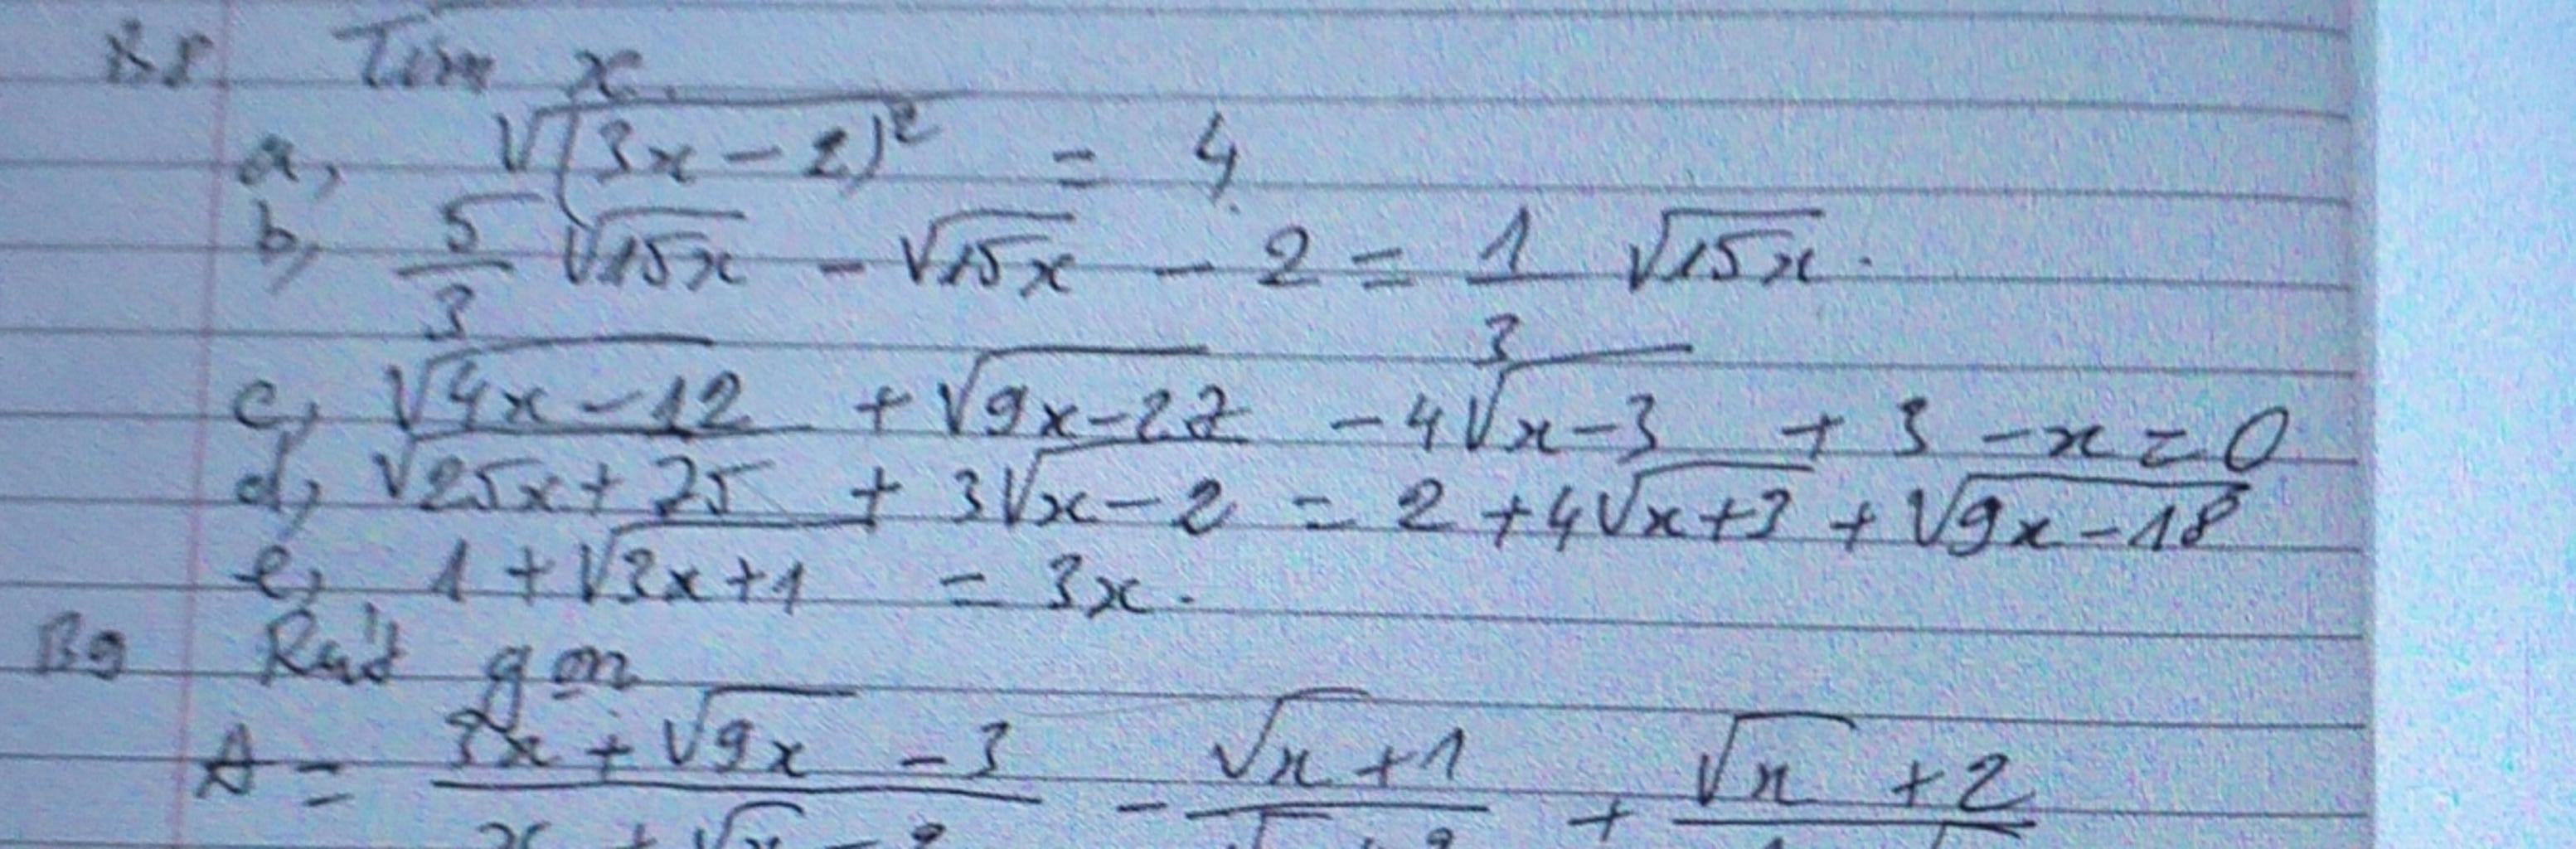 B8 Tìm x.
a, √(3x-2)² = 4.
b, 5/3 √15x - √15x - 2 = 1/3 √15x.
c, √4x-12 + √9x-27 - 4√x-3 + 3 - x = 0
d, √25x+75 + 3√x-2 = 2 + 4√x+3 + √9x-18
e, 1 + √3x+1 = 3x.
B9 Rút gọn
A = 3x + √9x - 3 - √x + 1 + √x + 2
x + √x - 2